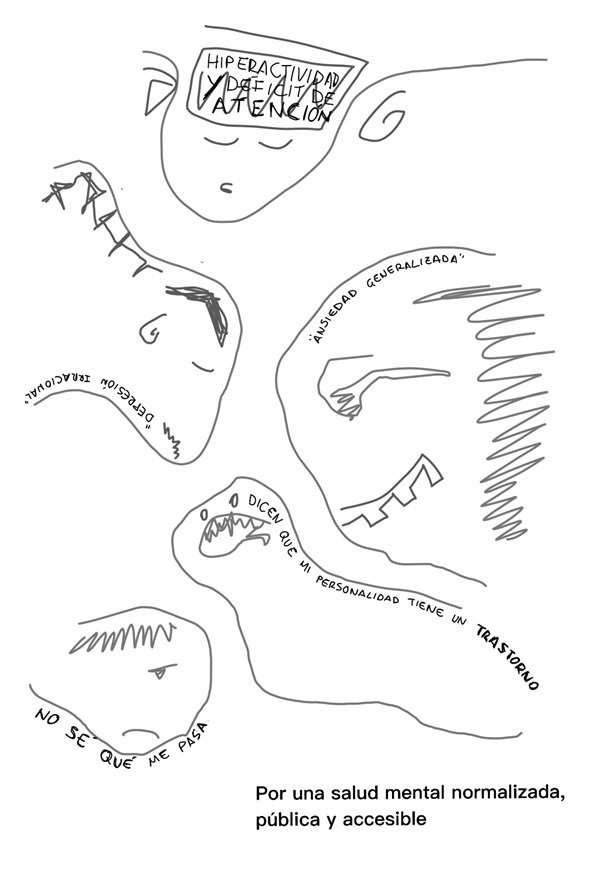 HIPERACTIVIDAD
Y DEFICIT DE
ATENCIÓN
"ANSIEDAD GENERALIZADA"
"DEPRESIÓN IRRACIONAL"
DICEN QUE MI PERSONALIDAD TIENE UN TRASTORNO
NO SÉ QUÉ ME PASA
Por una salud mental normalizada,
pública y accesible